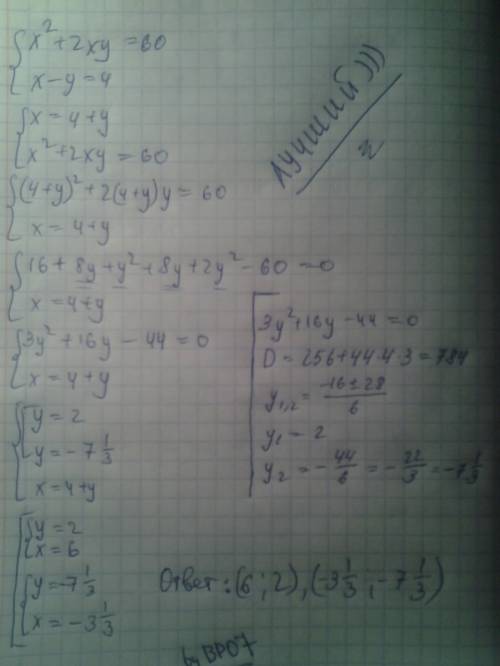 x² + 2xy = 60
x - y = 4
x = 4 + y
x² + 2xy = 60
(4+y)² + 2(4+y)y = 60
x = 4 + y
16 + 8y + y² + 8y + 2y² - 60 = 0
x = 4 + y
3y² + 16y - 44 = 0
x = 4 + y
y = 2
y = -7 1/3
x = 4 + y
y = 2
x = 6
y = -7 1/3
x = -3 1/3
Лучший)))
3y² + 16y - 44 = 0
D = 256 + 44·4·3 = 784
y₁,₂ = (-16±28)/6
y₁ = 2
y₂ = -44/6 = -22/3 = -7 1/3
Ответ: (6; 2), (-3 1/3; -7 1/3)
by BP07